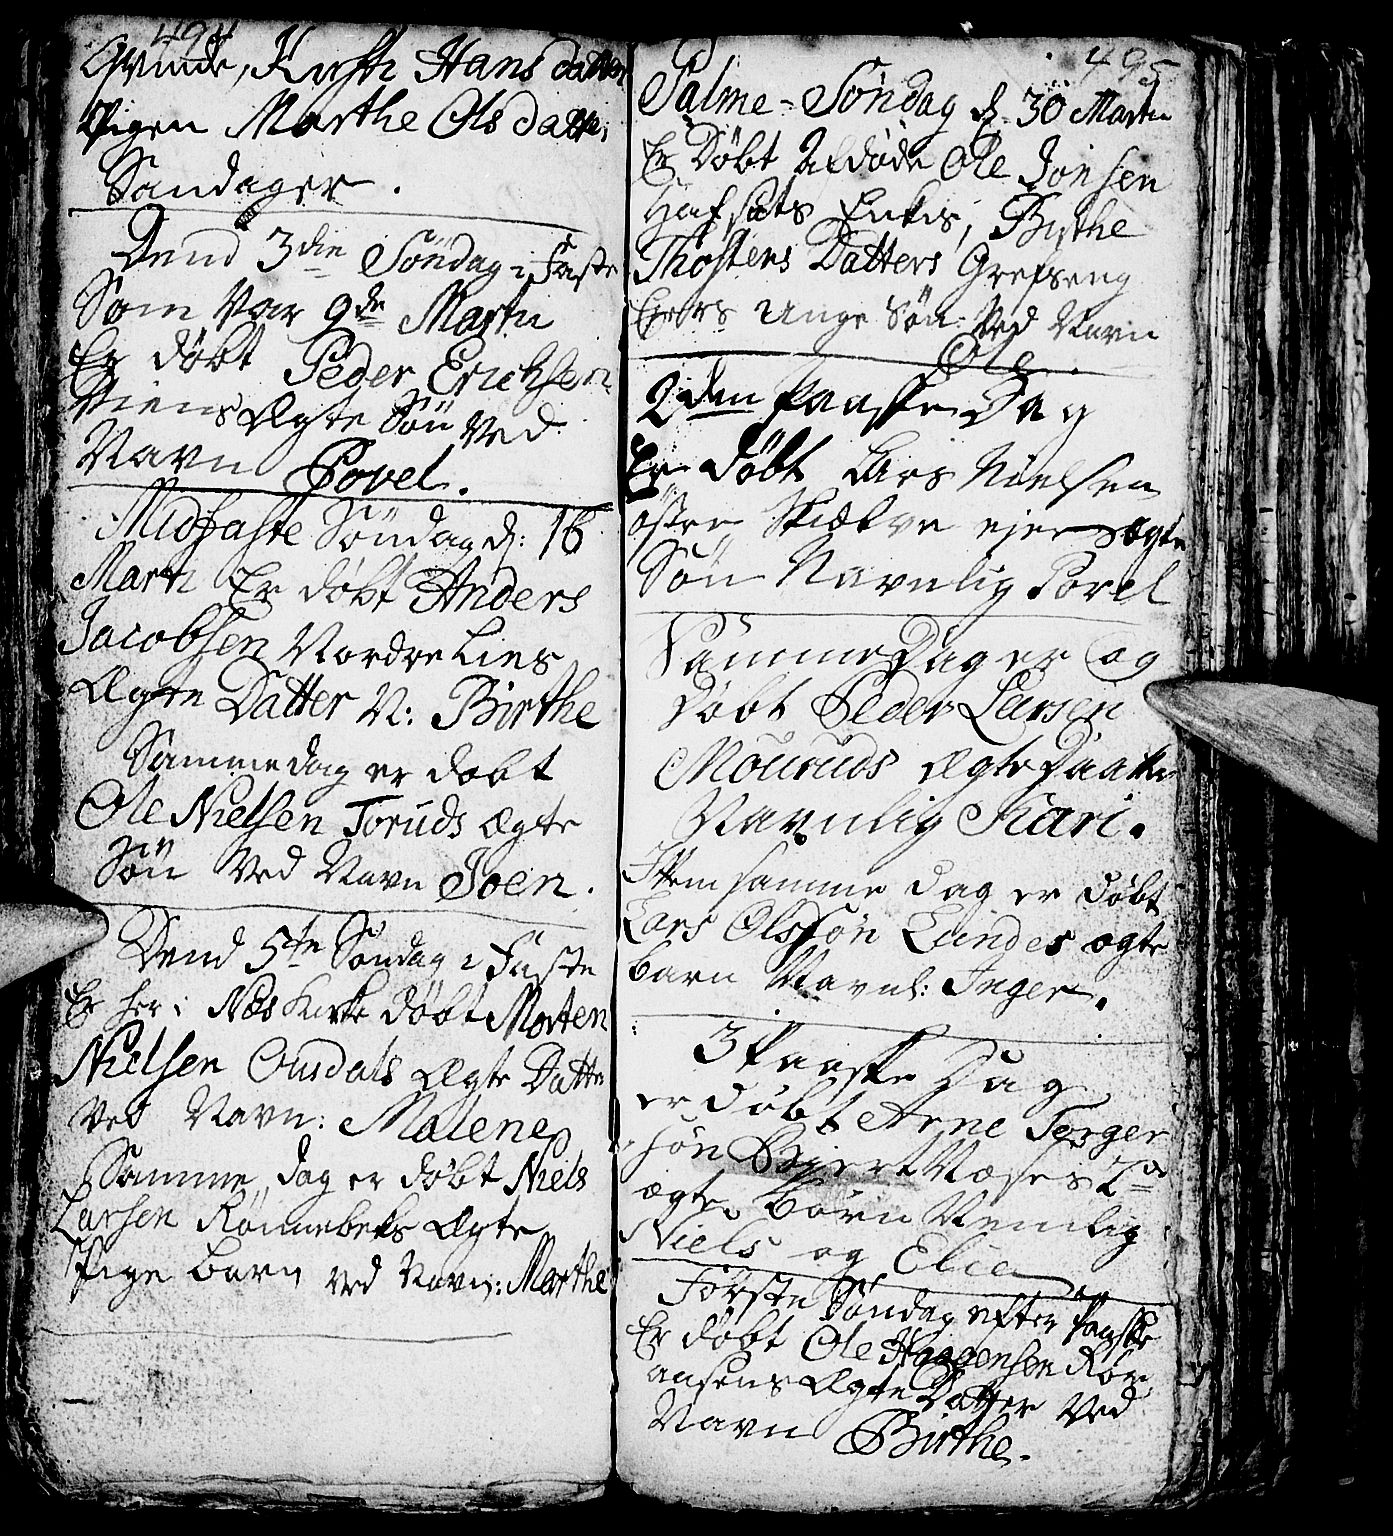 494
Qvinde, Kirsti Hans datter
Pigen Marthe Ols datter
Sandager.
Dend 3die Søndag i Faste
Som Var 9de Martii
Er døbt Peder Erichsen
Viens Ægte Søn Ved
Navn Povel.
Midfaste Søndag d: 16
Martii Er døbt Anders
Jacobsen Nordre Lies
Ægte Datter N: Birthe
Samme dag er døbt
Ole Nielsen Toruds Ægte
Søn Ved Navn Joen.
Dend 5te Søndag i Faste
Er her i Næs Kirke døbt Morten
Nielsen Ousdals Ægte Datter
Ved Navn: Malene
Samme dag er døbt Niels
Larsen Rønnebeks Ægte
Pige barn ved Navn: Marthe
495
Palme-Søndag d. 30 Martii
Er Døbt Ole Jonsen
Hafsæts Enkes, Birthe
Thostens Datters Grefseng
Eiers Unge Søn Ved Navn
Ole.
2den Paaske Dag
Er døbt Lars Nielsen
østre ejers ægte
Søn Navnlig Povel
Samme Dag er og
Døbt Peder Larsen
Mouruds Ægte Daatter
Navnlig Kari.
Item samme dag er døbt
Lars Olssøn Lundes ægte
barn Navnl: Inger.
3 Paaske Dag
er døbt Arne Torger
søn 2de
ægte Børn Nemlig
Niels og Elie
Første Søndag efter Paaske
Er døbt Ole Haagensen Røn
aasens Ægte Datter Ved
Navn Birthe.